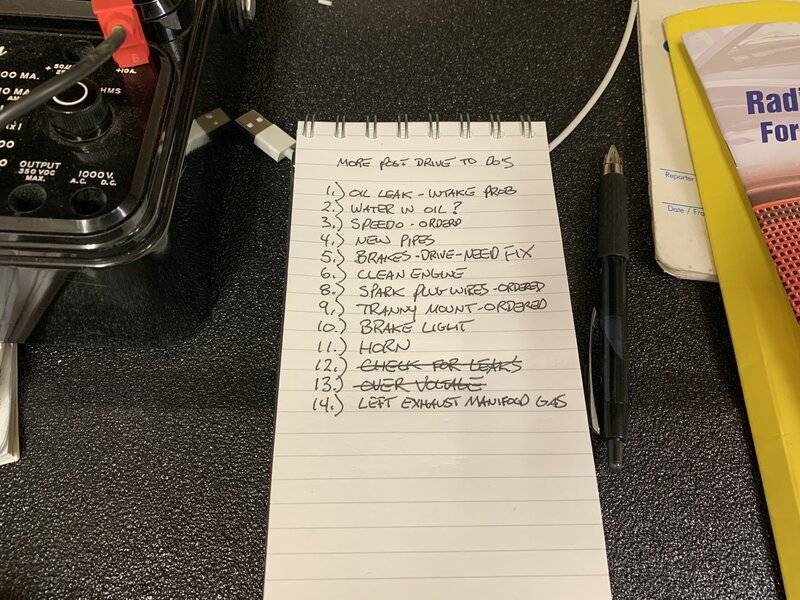 + 50μ
+10A.
00 MA.
10 MA.
AM
OHMS
X1
00
0
OUTPUT
350 VDC
MAX.
1000 V.
A.C. D.C.
MORE POST DRIVE TO DO'S
1.) OIL LEAK - INTAKE PROB
2.) WATER IN OIL?
3.) SPEEDO - ORDERD
4.) NEW PIPES
5.) BRAKES - DRIVE - NEED FIX
6.) CLEAN ENGINE
8.) SPARK PLUG WIRES - ORDERED
9.) TRANNY MOUNT - ORDERED
10.) BRAKE LIGHT
11.) HORN
12.) CHECK FOR LEAKS
13.) OVER VOLTAGE
14.) LEFT EXHAUST MANIFOLD GAS
Reporter
Date / Fra
Radi
For